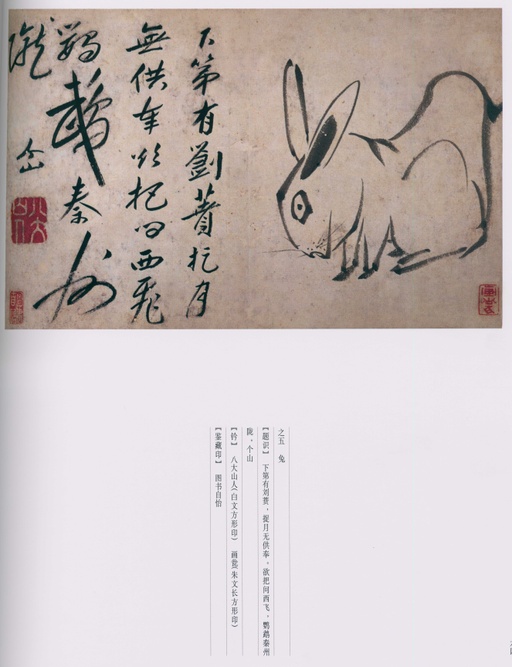 下第有劉蕡捉月
無供奉欲把问西飛
鸚鵡秦州
隴 个山
八大山人
之五 兔
【题识】 下第有刘蕡，捉月无供奉，欲把问西飞，鹦鹉秦州
陇。个山
【钤】 八大山人(白文方形印) 画(朱文长方形印)
【鉴藏印】 图书自怡